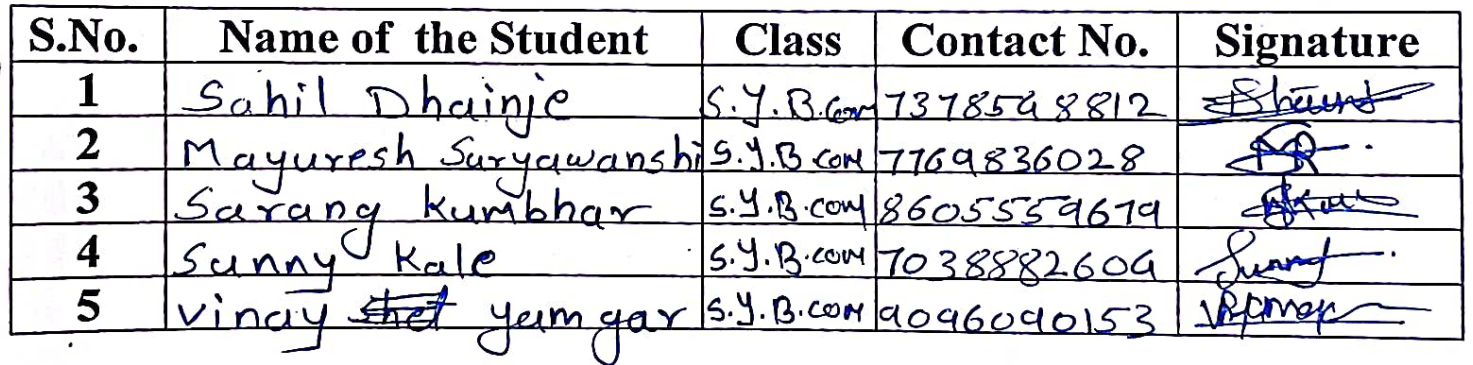 S.No. Name of the Student Class Contact No. Signature
1 Sahil Dhainje S.Y.B.Com 7378598812
2 Mayuresh Suryawanshi S.Y.B.COM 7769836028
3 Sarang Kumbhar S.Y.B.com 8605559679
4 Sunny Kale S.Y.B.com 7038882609 Sunny
5 Vinay yamgar S.Y.B.COM 9096090153